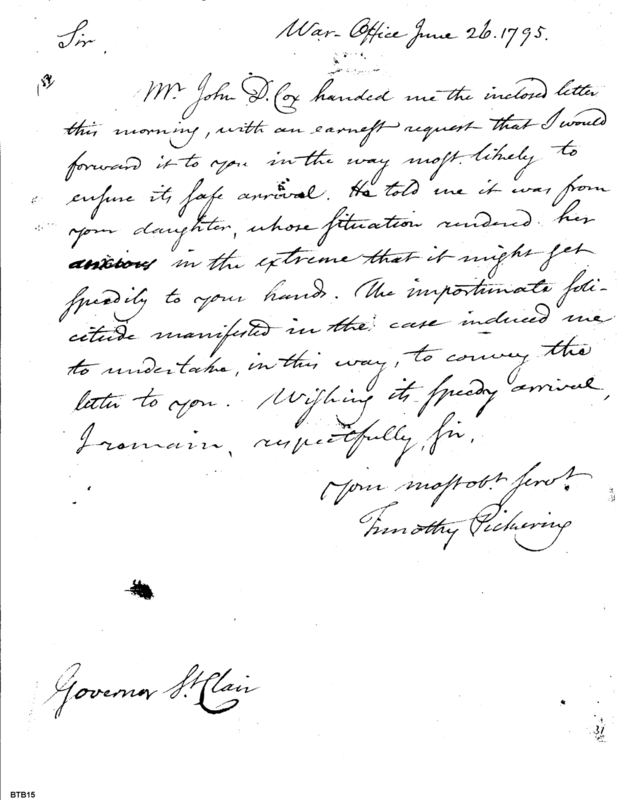 War-Office June 26. 1795.
Sir
Mr. John D. Cox handed me the inclosed letter
this morning, with an earnest request that I would
forward it to you in the way most likely to
ensure its safe arrival. He told me it was from
your daughter, whose situation rendered her
anxious in the extreme that it might get
speedily to your hands. The importunate soli-
citude manifested in the case induced me
to undertake, in this way, to convey the
letter to you. Wishing its speedy arrival,
I remain, respectfully, sir,
your most obt. servt.
Timothy Pickering
Governor St. Clair
31
BTB15